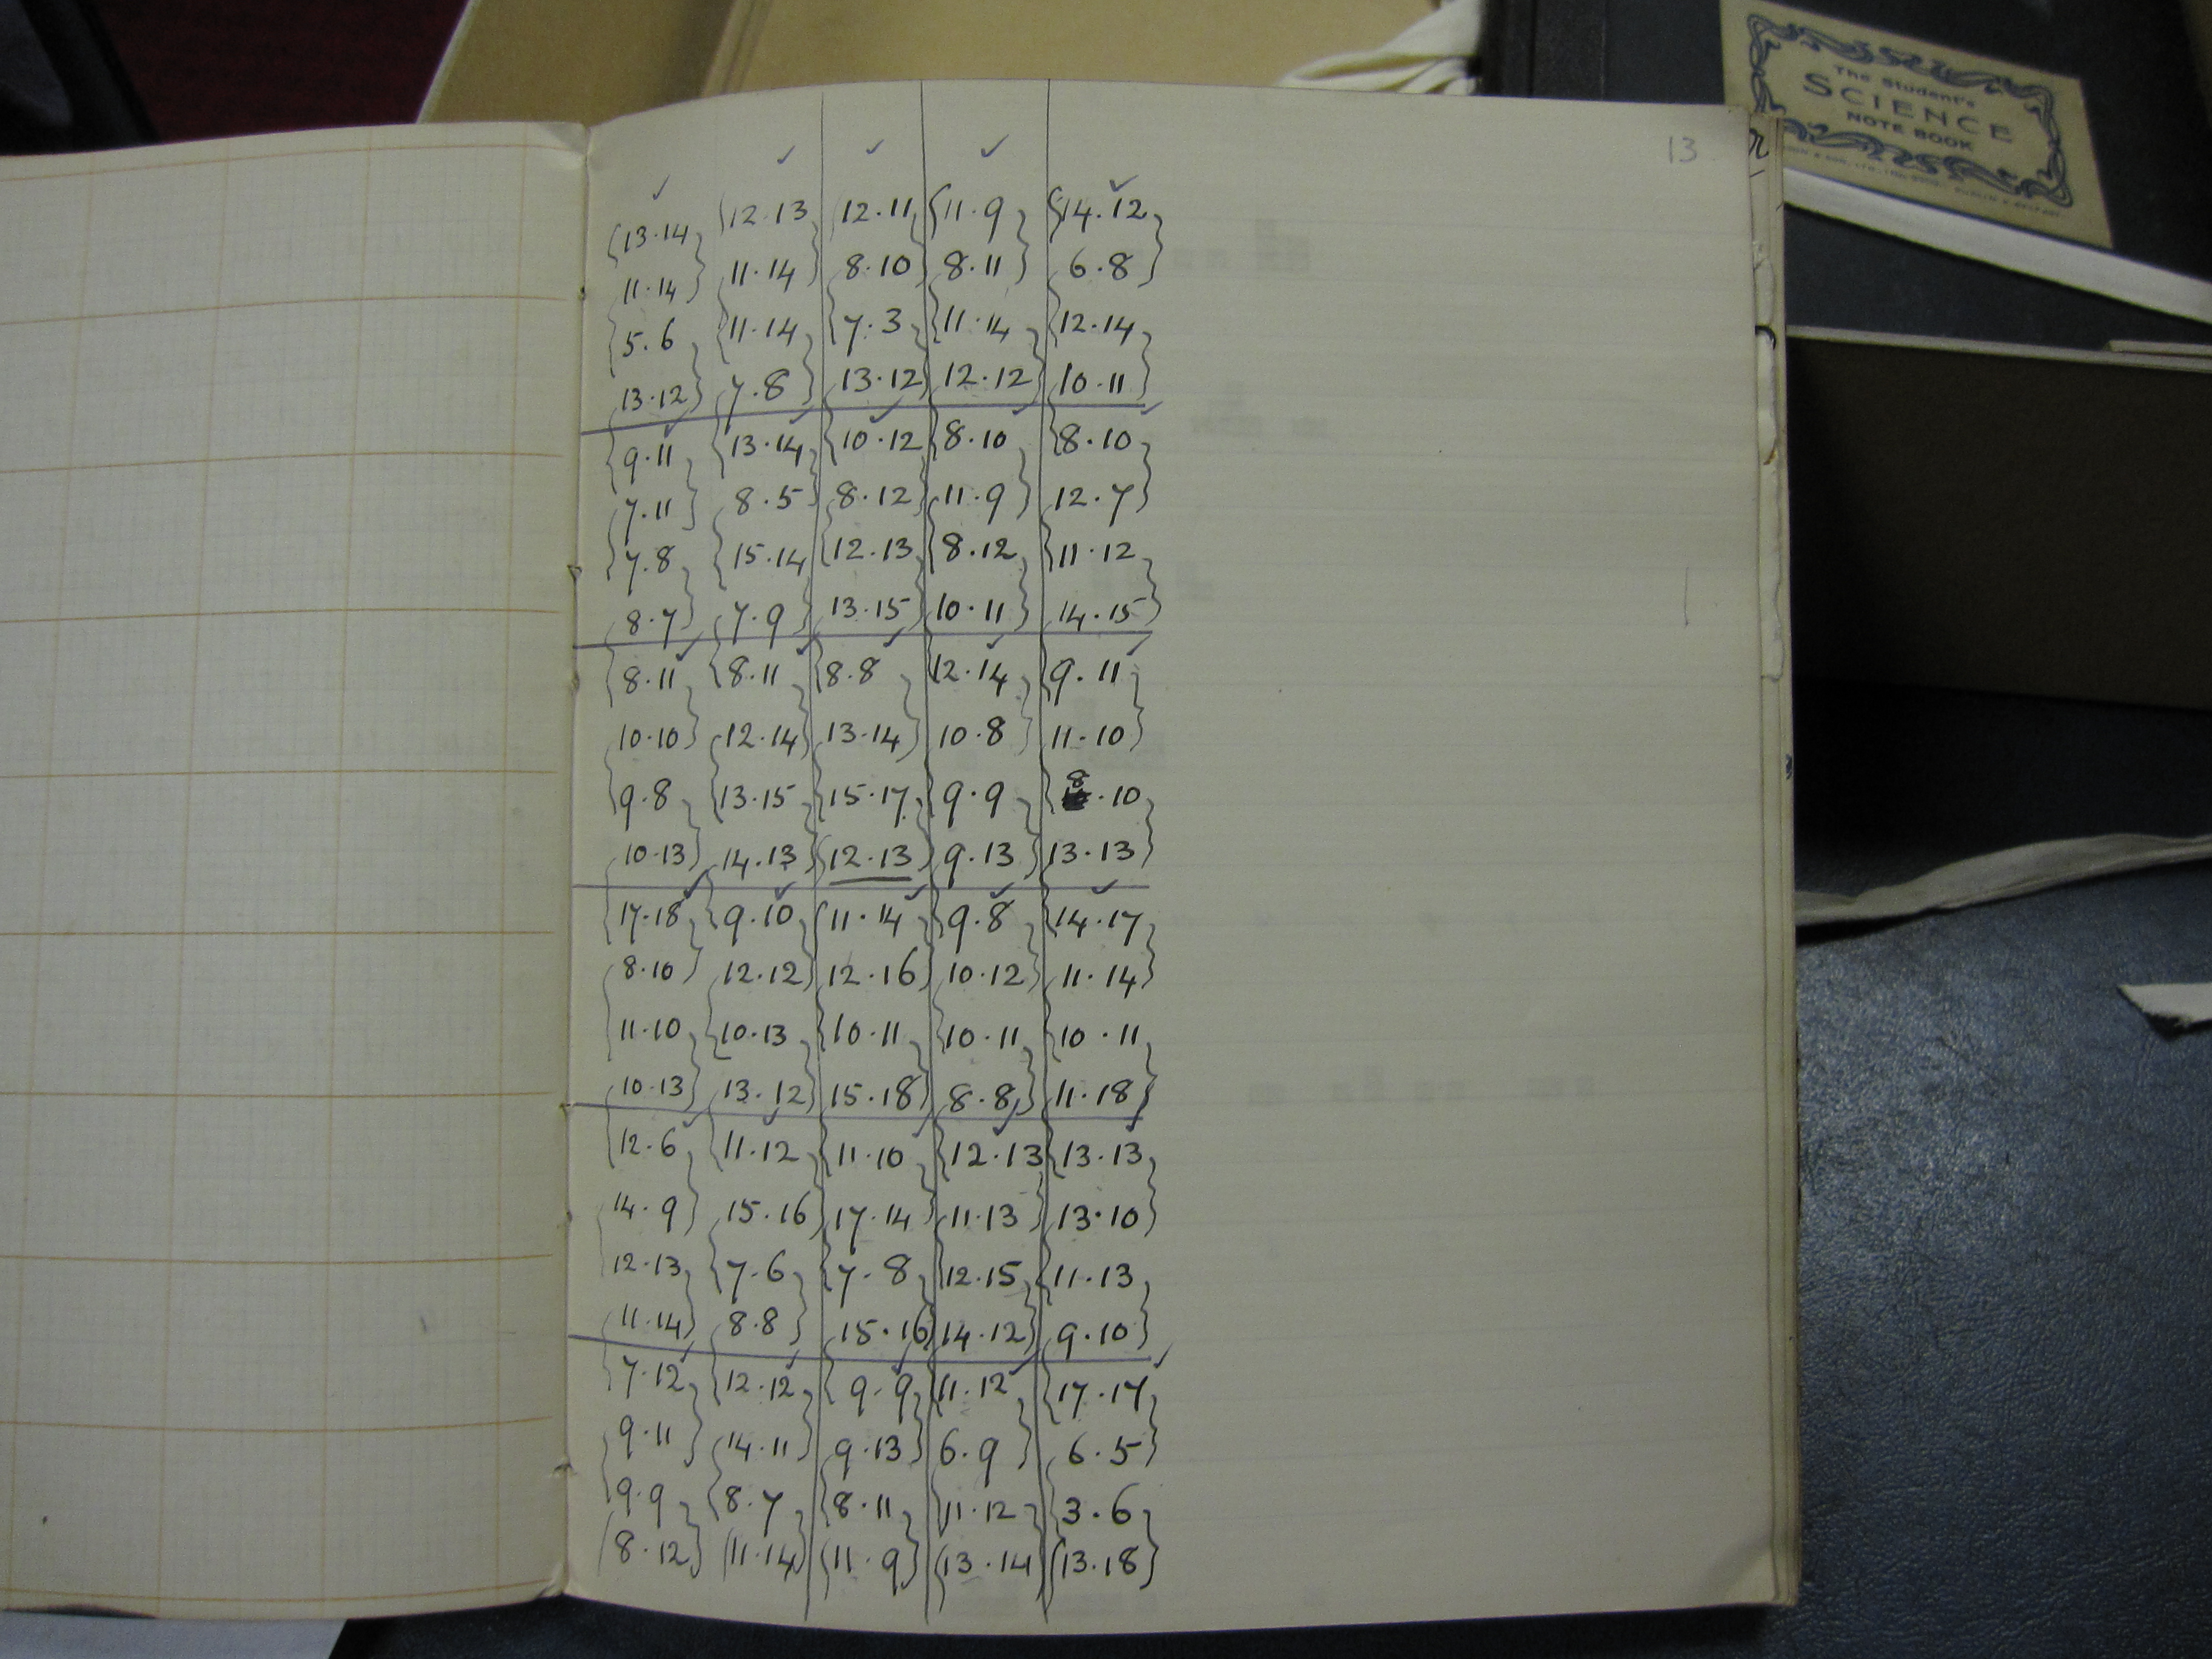 The Student's
SCIENCE
NOTE BOOK
13
13.14 12.13 12.11 11.9 14.12
11.14 11.14 8.10 8.11 6.8
5.6 11.14 7.3 11.14 12.14
13.12 7.8 13.12 12.12 10.11
9.11 13.14 10.12 8.10 8.10
7.11 8.5 8.12 11.9 12.7
7.8 15.14 12.13 8.12 11.12
8.7 7.9 13.15 10.11 14.15
8.11 8.11 8.8 12.14 9.11
10.10 12.14 13.14 10.8 11.10
9.8 13.15 15.17 9.9 8.10
10.13 14.13 12.13 9.13 13.13
17.18 9.10 11.14 9.8 14.17
8.10 12.12 12.16 10.12 11.14
11.10 10.13 10.11 10.11 10.11
10.13 13.12 15.18 8.8 11.18
12.6 11.12 11.10 12.13 13.13
14.9 15.16 17.14 11.13 13.10
12.13 7.6 7.8 12.15 11.13
11.14 8.8 15.16 14.12 9.10
7.12 12.12 9.9 11.12 17.17
9.11 14.11 9.13 6.9 6.5
9.9 8.7 8.11 11.12 3.6
8.12 11.14 11.9 13.14 13.18